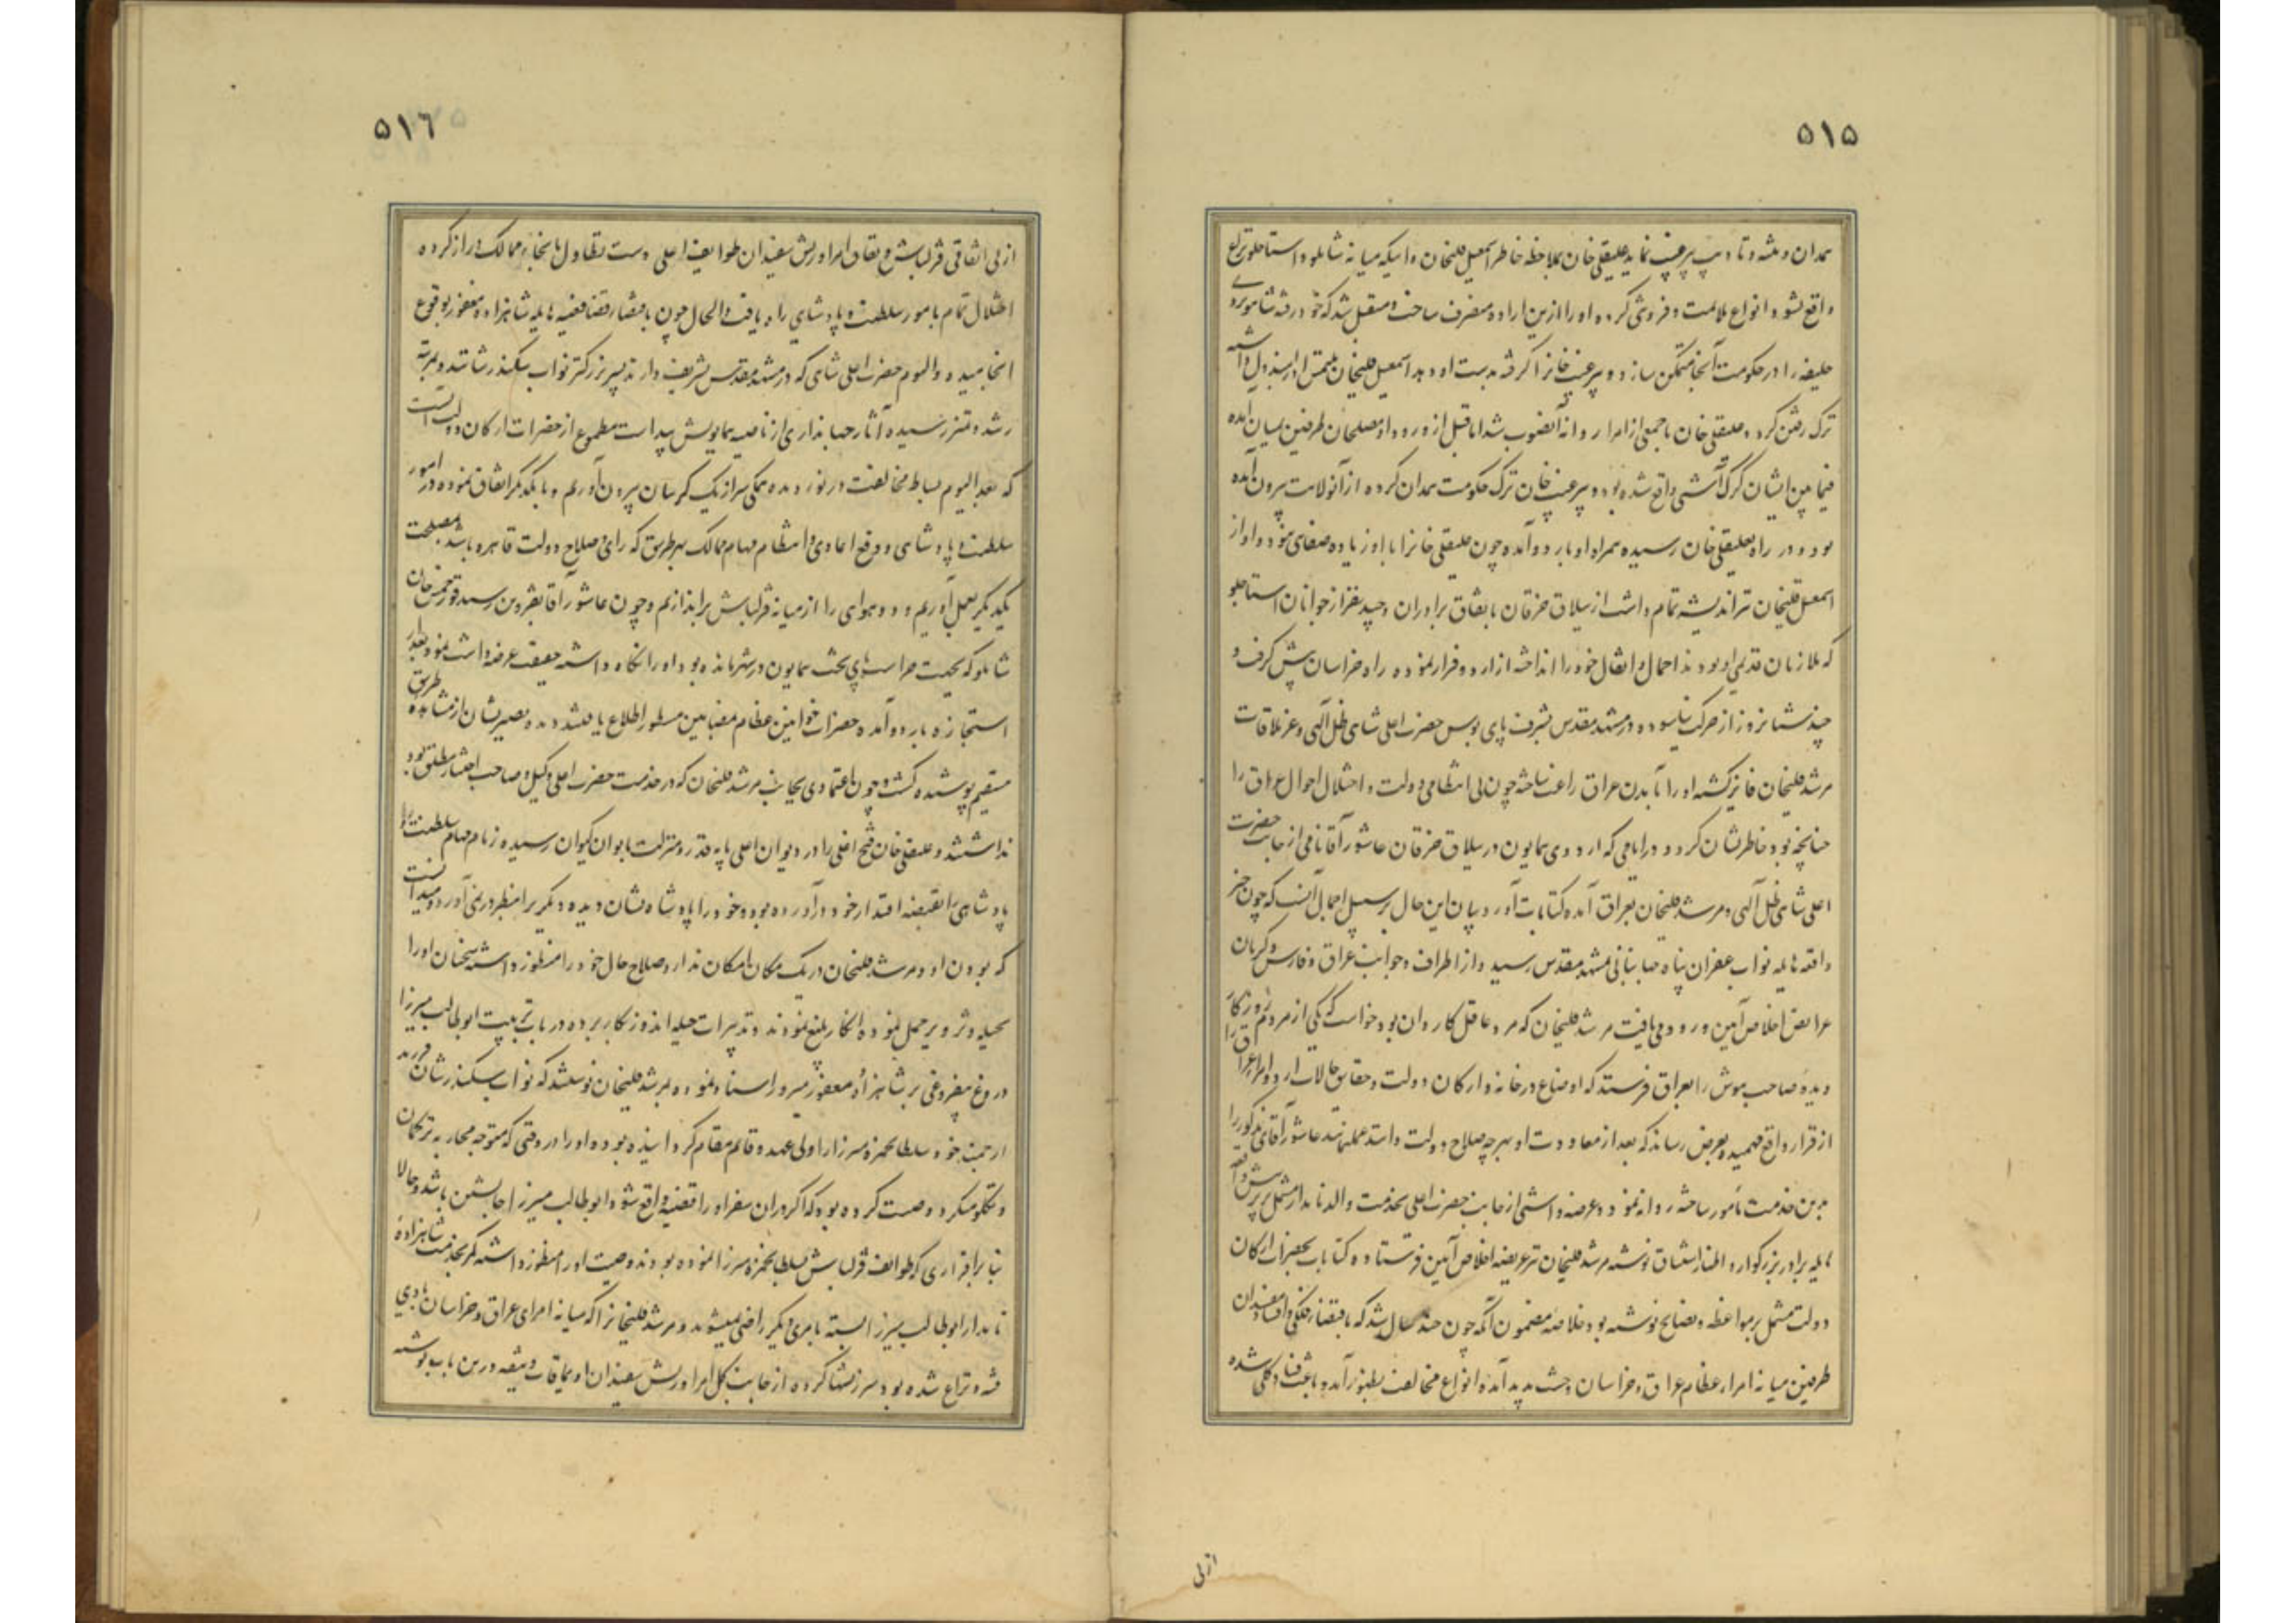 ۵۱۵
همدان رفته و تادیب پیر غیب نماید علیقلی خان بملاحظه خاطر اسمعیل قلیخان و اینکه میانه شاملو و استاجلو نزاع
واقع نشود انواع ملایمت و فروتنی کرده او را ازین اراده منصرف ساخت و متقبل شد که خود رفته شاهویردی
خلیفه را در حکومت آنجا متمکن سازد و پیر غیب خانرا گرفته بدست او دهد اسمعیل قلیخان ملتمس او را مبذول داشته
ترک رفتن کرد و علیقلی خان با جمعی از امرا روانه آنصوب شد اما قبل از ورود او مصلحان طرفین بمیان آمده
فیمابین ایشان گرگ آشتی واقع شده بود و پیر غیب خان ترک حکومت همدان کرده از آنولایت بیرون آمده
بود و در راه بعلیقلی خان رسیده همراه او باردو آمد و چون علیقلی خانرا با او زیاده صفای نبود و او از
اسمعیل قلیخان نیز اندیشه تمام داشت از ییلاق خرقان باتفاق برادران و چند نفر از جوانان استاجلو
که ملازمان قدیمی او بودند احمال و اثقال خود را انداخته از اردو فرار نموده راه خراسان پیش گرفت و
چند شبانروز از حرکت نیاسوده در مشهد مقدس بشرف پای بوس حضرت اعلی شاهی ظل اللهی و عز ملاقات
مرشد قلیخان فایز گشته او را بآمدن عراق راغب ساخته چون بی انتظامی دولت و اختلال احوال عراق را
چنانچه بود خاطرنشان کرد و در ایامی که اردوی همایون در ییلاق خرقان عاشور آقا نامی از جانب حضرت
اعلی شاهی ظل اللهی و مرشد قلیخان بعراق آمده کتابات آورد بیان این حال بر سبیل اجمال آنست که چون خبر
واقعه هایله نواب غفران پناه جهانبانی بمشهد مقدس رسید و از اطراف و جوانب عراق و فارس و کرمان
عرایض اخلاص آیین ورود می یافت مرشد قلیخان که مرد عاقل کاردان بود خواست که یکی از مردم روزگار
دیده صاحب هوش را بعراق فرستد که اوضاع درخانه و ارکان دولت و حقایق حالات اردو و امراء عراق را
از قرار واقع فهمیده بعرض رساند که بعد از معاودت او بهر چه صلاح دولت داند عمل نماید عاشور آقای مذکور را
برین خدمت مأمور ساخته روانه نمود و عرضه داشتی از جانب حضرت اعلی بخدمت والد نامدار مشتمل بر پرسش واقعه
هایله برادر بزرگوار و اظهار اشتیاق نوشته مرشد قلیخان نیز عریضه اخلاص آیین فرستاده و کتابات بحضرات ارکان
دولت مشتمل بر مواعظه و نصایح نوشته بود خلاصه مضمون آنکه چون چند سال شد که باقتضاء فلکی و افساد مفسدان
طرفین میانه امراء عظام عراق و خراسان وحشت پدید آمده انواع مخالفت بظهور آمده و باعث فساد کلی شده
ازبی
۵۱۶
از بی اتفاقی قزلباش و نفاق امرا و ریش سفیدان طوایف اعادی دست تطاول بانحاء ممالک دراز کرده
اختلال تمام بامور سلطنت و پادشاهی راه یافت و الحال چون باقتضاء قضا قضیه هایله شاهزاده مغفور بوقوع
انجامیده و الیوم حضرت اعلی شاهی که در مشهد مقدس تشریف دارند پسر بزرگتر نواب سکندر شانند و بمرتبه
رشد و تمیز رسیده آثار جهانداری از ناصیه همایونش پیداست مطموع از حضرات ارکان دولت آنست
که بعد الیوم بساط مخالفت در نوردیده همگی سر از یک گریبان بیرون آوریم و با یکدیگر اتفاق نموده در امور
سلطنت و پادشاهی و دفع اعادی و انتظام مهام ممالک بهر طریق که رای و صلاح دولت قاهره باشد بمصلحت
یکدیگر بعمل آوریم و دو هوای را از میانه قزلباش براندازیم و چون عاشور آقا بقزوین رسید قورخمس خان
شاملو که بجهت حراست پای تخت همایون در شهر مانده بود او را نگاه داشته حقیقت عرضه داشت نمود و بعد از
استجازه باردو آمده حضرات خوانین عظام بمضامین مسطور اطلاع یافتند دیده بصیرتشان از مشاهده طریق
مستقیم پوشیده گشت و چون اعتمادی بجانب مرشد قلیخان که در خدمت حضرت اعلی وکیل و صاحب اختیار مطلق بود
نداشتند و علیقلی خان فتح اغلی را در دیوان اعلی پایه قدر و منزلت بایوان کیوان رسیده زمام مهام سلطنت و
پادشاهی را بقبضه اقتدار خود درآورده بود و خود را پادشاه نشان دیده دیگری را منظور نمی آورد و میدانست
که بودن او و مرشد قلیخان در یک مکان امکان ندارد صلاح حال خود را منظور داشته سخنان او را
بحیله و تزویر حمل نموده انکار بلیغ نمودند و تدبیرات حیله اندوز بکار برده در باب تربیت ابوطالب میرزا
دروغ بیفروغی بر شاهزاده مغفور مبرور اسناد نموده بمرشد قلیخان نوشتند که نواب سکندر شان فرزند
ارجمند خود سلطان حمزه میرزا را ولی عهد و قایم مقام گردانیده بود و او را در وقتی که متوجه محاربه ترکمان
و تکلو میکرد وصیت کرده بود که اگر در آن سفر او را قضیه واقع شود ابوطالب میرزا جانشین باشد و حالا
بنا بر اقراری که طوایف قزلباش بسلطان حمزه میرزا نموده بودند وصیت او را منظور داشته کمر بخدمت شاهزاده
نامدار ابوطالب میرزا بسته بامری دیگر راضی نمیشوند و مرشد قلیخانرا که میانه امرای عراق و خراسان بادی
فتنه و نزاع شده بود سرزنشها کرده از جانب کل امرا و ریش سفیدان اویماقات وثیقه درین باب نوشته